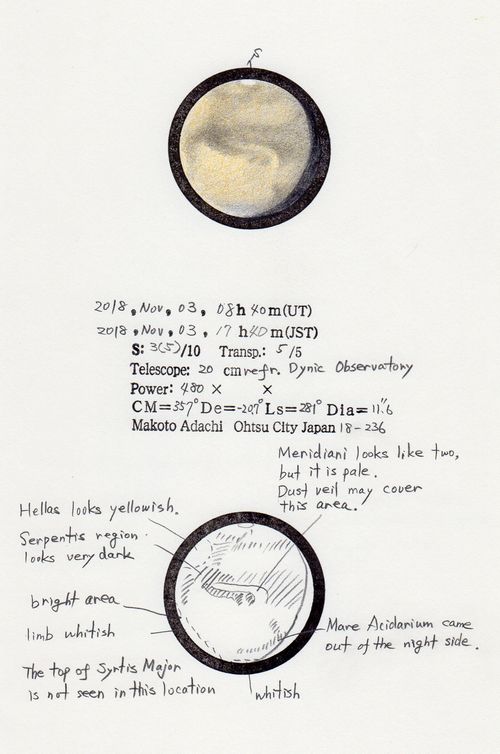 S
2018, Nov, 03, 08h 40m(UT)
2018, Nov, 03, 17 h40m(JST)
S: 3(5)/10 Transp.: 5/5
Telescope: 20 cm refr. Dynic Observatory
Power: 480 × ×
CM=357° De=-20.7° Ls=281° Dia=11.″6
Makoto Adachi Ohtsu City Japan 18-236
Meridiani looks like two,
but it is pale.
Dust veil may cover
this area.
Hellas looks yellowish.
Serpentis region
looks very dark
bright area
limb whitish
Mare Acidarium came
out of the night side.
The top of Syrtis Major
is not seen in this location
whitish